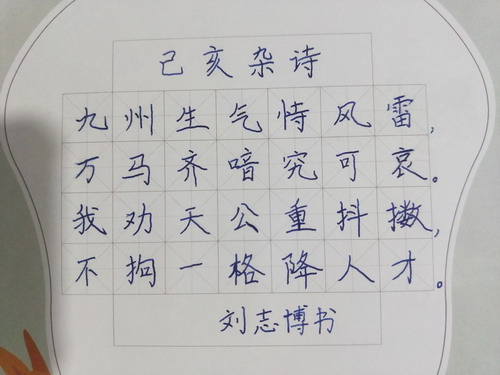 己亥杂诗
九州生气恃风雷,
万马齐喑究可哀。
我劝天公重抖擞,
不拘一格降人才。
刘志博书